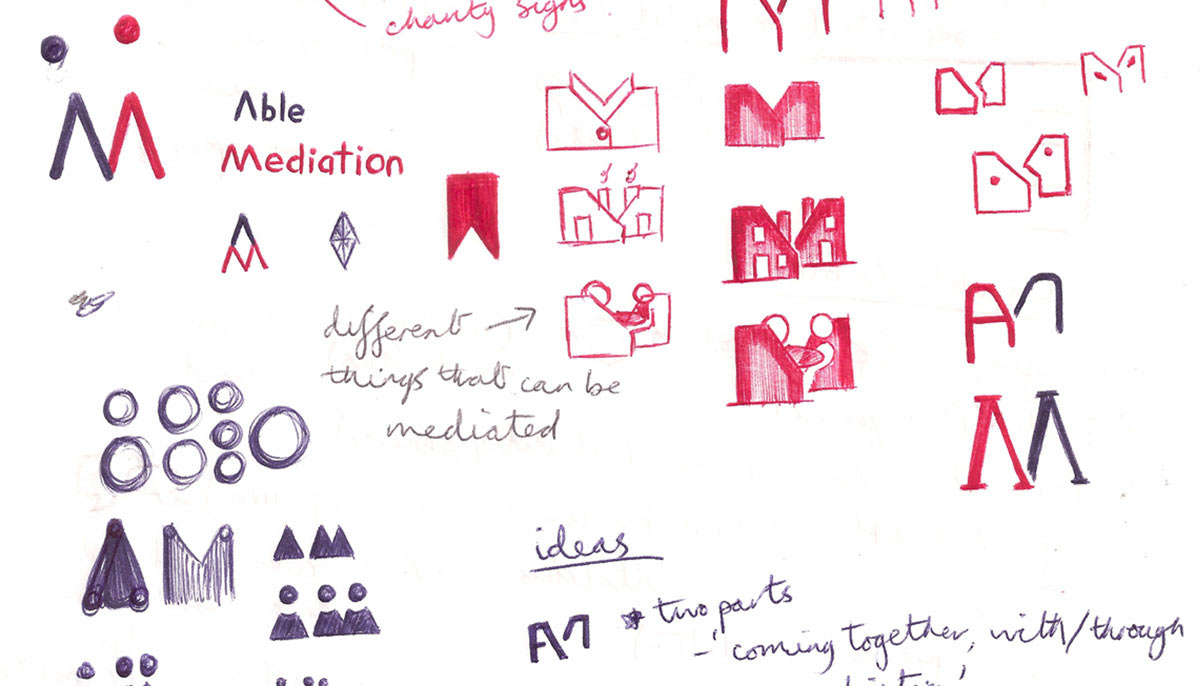 charity signs.
Able
Mediation
different
things that can be
mediated
AM
AM
ideas
AM * two parts
- 'coming together, with/through